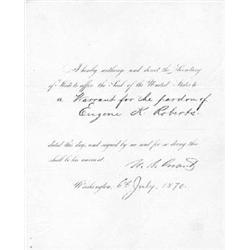 I hereby authorize and direct the Secretary
of State to affix the Seal of the United States to
a Warrant for the pardon of
Eugene K. Roberts
dated this day, and signed by me and for so doing this
shall be his warrant.
U. S. Grant
Washington, 6th July, 1870.